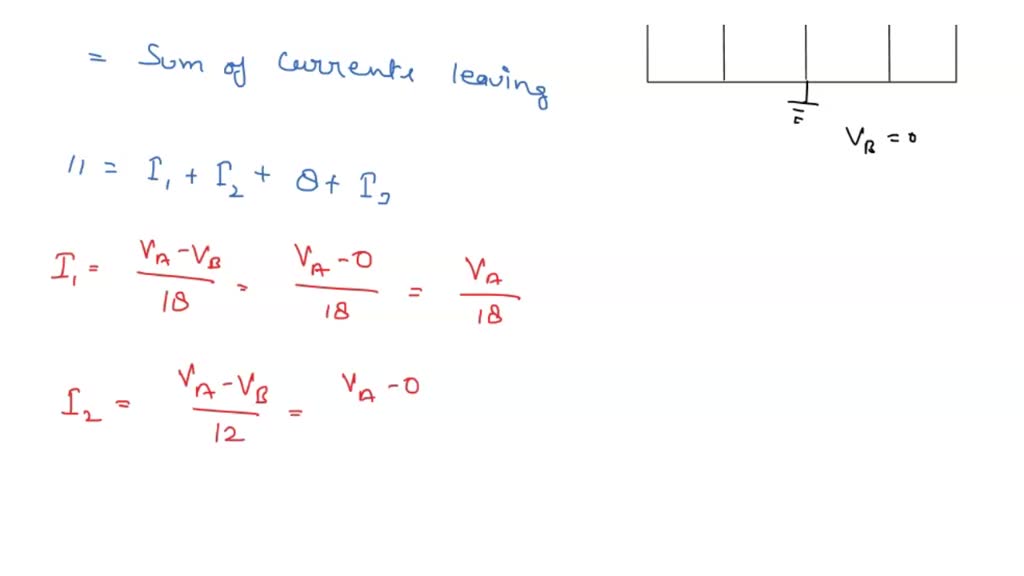 = Sum of currents leaving
V_B = 0
11 = I_1 + I_2 + 8 + I_3
I_1 = (V_A - V_B)/18 = (V_A - 0)/18 = V_A/18
I_2 = (V_A - V_B)/12 = V_A - 0